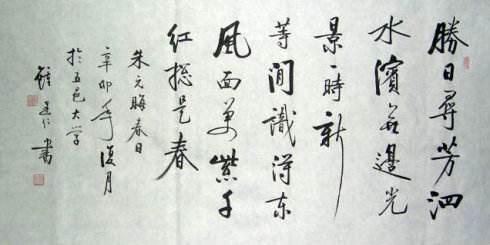 勝日尋芳泗
水濱無邊光
景一時新
等閒識得东
風面萬紫千
紅總是春
朱元晦春日
辛卯年復月
於五邑大学
仁書